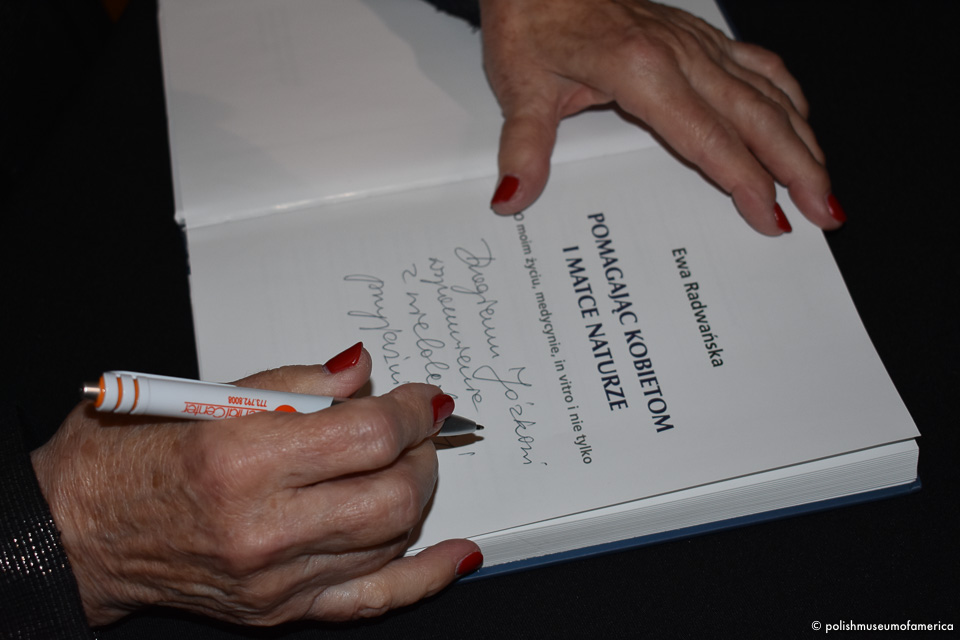 Ewa Radwańska
POMAGAJĄC KOBIETOM
I MATCE NATURZE
o moim życiu, medycynie, in vitro i nie tylko
Drogiemu Józkowi
wspomnienie
z wielolet
przyjaźni
!
773.792.8008
Center
© polishmuseumofamerica